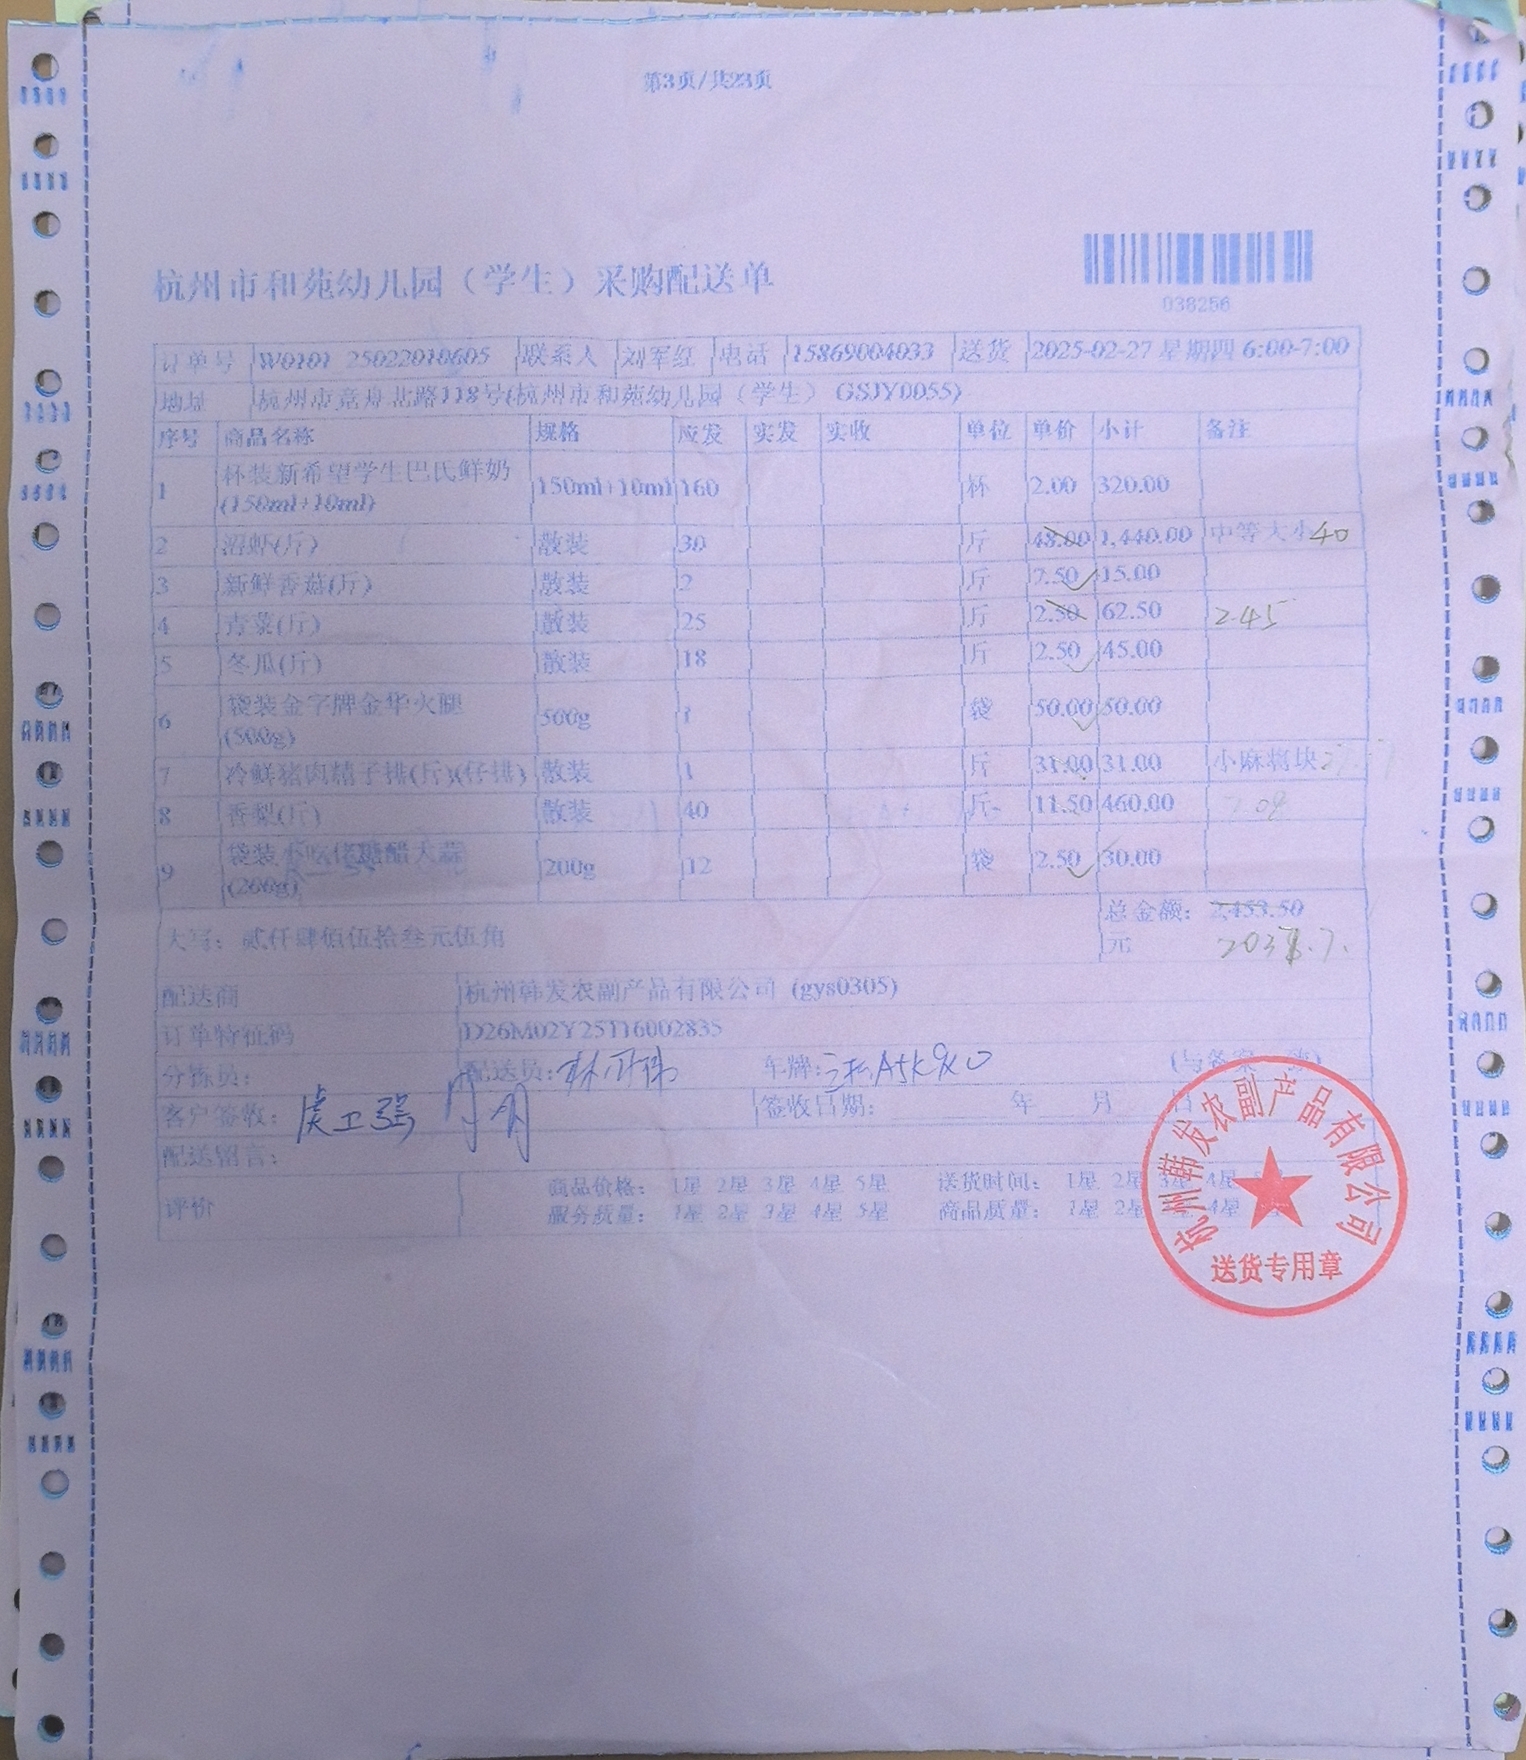 第3页/共23页
杭州市和苑幼儿园（学生）采购配送单
038256
订单号 W0101 25022010605 联系人 刘军红 电话 15869004033 送货 2025-02-27 星期四 6:00-7:00
地址 杭州市竞舟北路118号(杭州市和苑幼儿园（学生） GSJY0055)
序号 商品名称 规格 应发 实发 实收 单位 单价 小计 备注
1 杯装新希望学生巴氏鲜奶(150ml+10ml) 150ml+10ml 160 杯 2.00 320.00
2 沼虾(斤) 散装 30 斤 48.00 1,440.00 中等大小 40
3 新鲜香菇(斤) 散装 2 斤 7.50 15.00
4 青菜(斤) 散装 25 斤 2.50 62.50 2.45
5 冬瓜(斤) 散装 18 斤 2.50 45.00
6 袋装金字牌金华火腿(500g) 500g 1 袋 50.00 50.00
7 冷鲜猪肉精子排(斤)(仔排) 散装 1 斤 31.00 31.00 小麻将块
8 香梨(斤) 散装 40 斤 11.50 460.00
9 袋装 糖醋大蒜(200g) 200g 12 袋 2.50 30.00
大写：贰仟肆佰伍拾叁元伍角 总金额：2,453.50元
配送商 杭州韩发农副产品有限公司 (gys0305)
订单特征码 D26M02Y25T16002835
分拣员： 配送员： 车牌： (与备案一致)
客户签收：虞卫强 签收日期： 年 月 日
配送留言：
评价 商品价格： 1星 2星 3星 4星 5星 送货时间： 1星 2星 3星 4星
服务质量： 1星 2星 3星 4星 5星 商品质量： 1星 2星 4星
杭州韩发农副产品有限公司
送货专用章